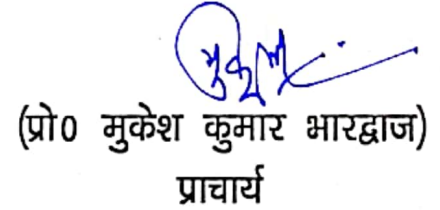 मुकेश
(प्रो0 मुकेश कुमार भारद्वाज)
प्राचार्य